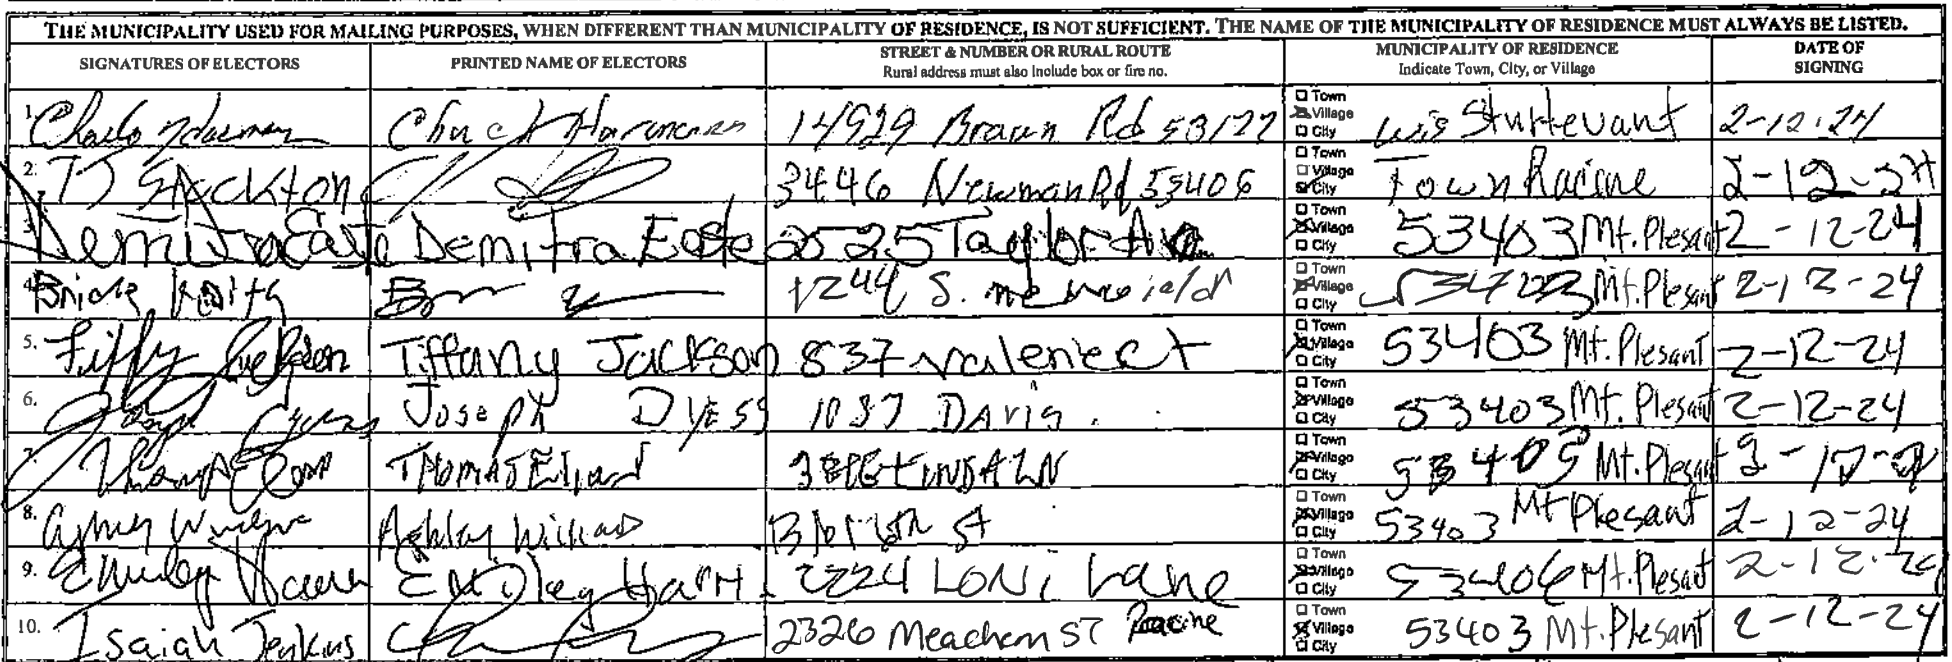 THE MUNICIPALITY USED FOR MAILING PURPOSES, WHEN DIFFERENT THAN MUNICIPALITY OF RESIDENCE, IS NOT SUFFICIENT. THE NAME OF THE MUNICIPALITY OF RESIDENCE MUST ALWAYS BE LISTED.
SIGNATURES OF ELECTORS
PRINTED NAME OF ELECTORS
STREET & NUMBER OR RURAL ROUTE
Rural address must also include box or fire no.
MUNICIPALITY OF RESIDENCE
Indicate Town, City, or Village
DATE OF
SIGNING
1. Chuck 14929 Braun Rd 53177 Town Village City Sturtevant 2-12-24
2. TJ Stackton 3446 Newman Rd 53406 Town Village City Town Racine 2-12-24
3. Demitra Easte Demitra Easte 2525 Taylor Ave Town Village City 53403 Mt. Plesant 2-12-24
4. 1244 S. Town Village City Mt. Plesant 2-12-24
5. Tiffany Jackson 837 Town Village City 53403 Mt. Plesant 2-12-24
6. Joseph Dyess 1037 Davis Town Village City 53403 Mt. Plesant 2-12-24
7. Thomas Town Village City 53403 Mt. Plesant 2-12-24
8. Ashley St Town Village City 53403 Mt Plesant 2-12-24
9. 2224 Loni Lane Town Village City 53406 Mt. Plesant 2-12-24
10. Isaiah Jenkins 2326 Meachem ST Racine Town Village City 53403 Mt. Plesant 2-12-24